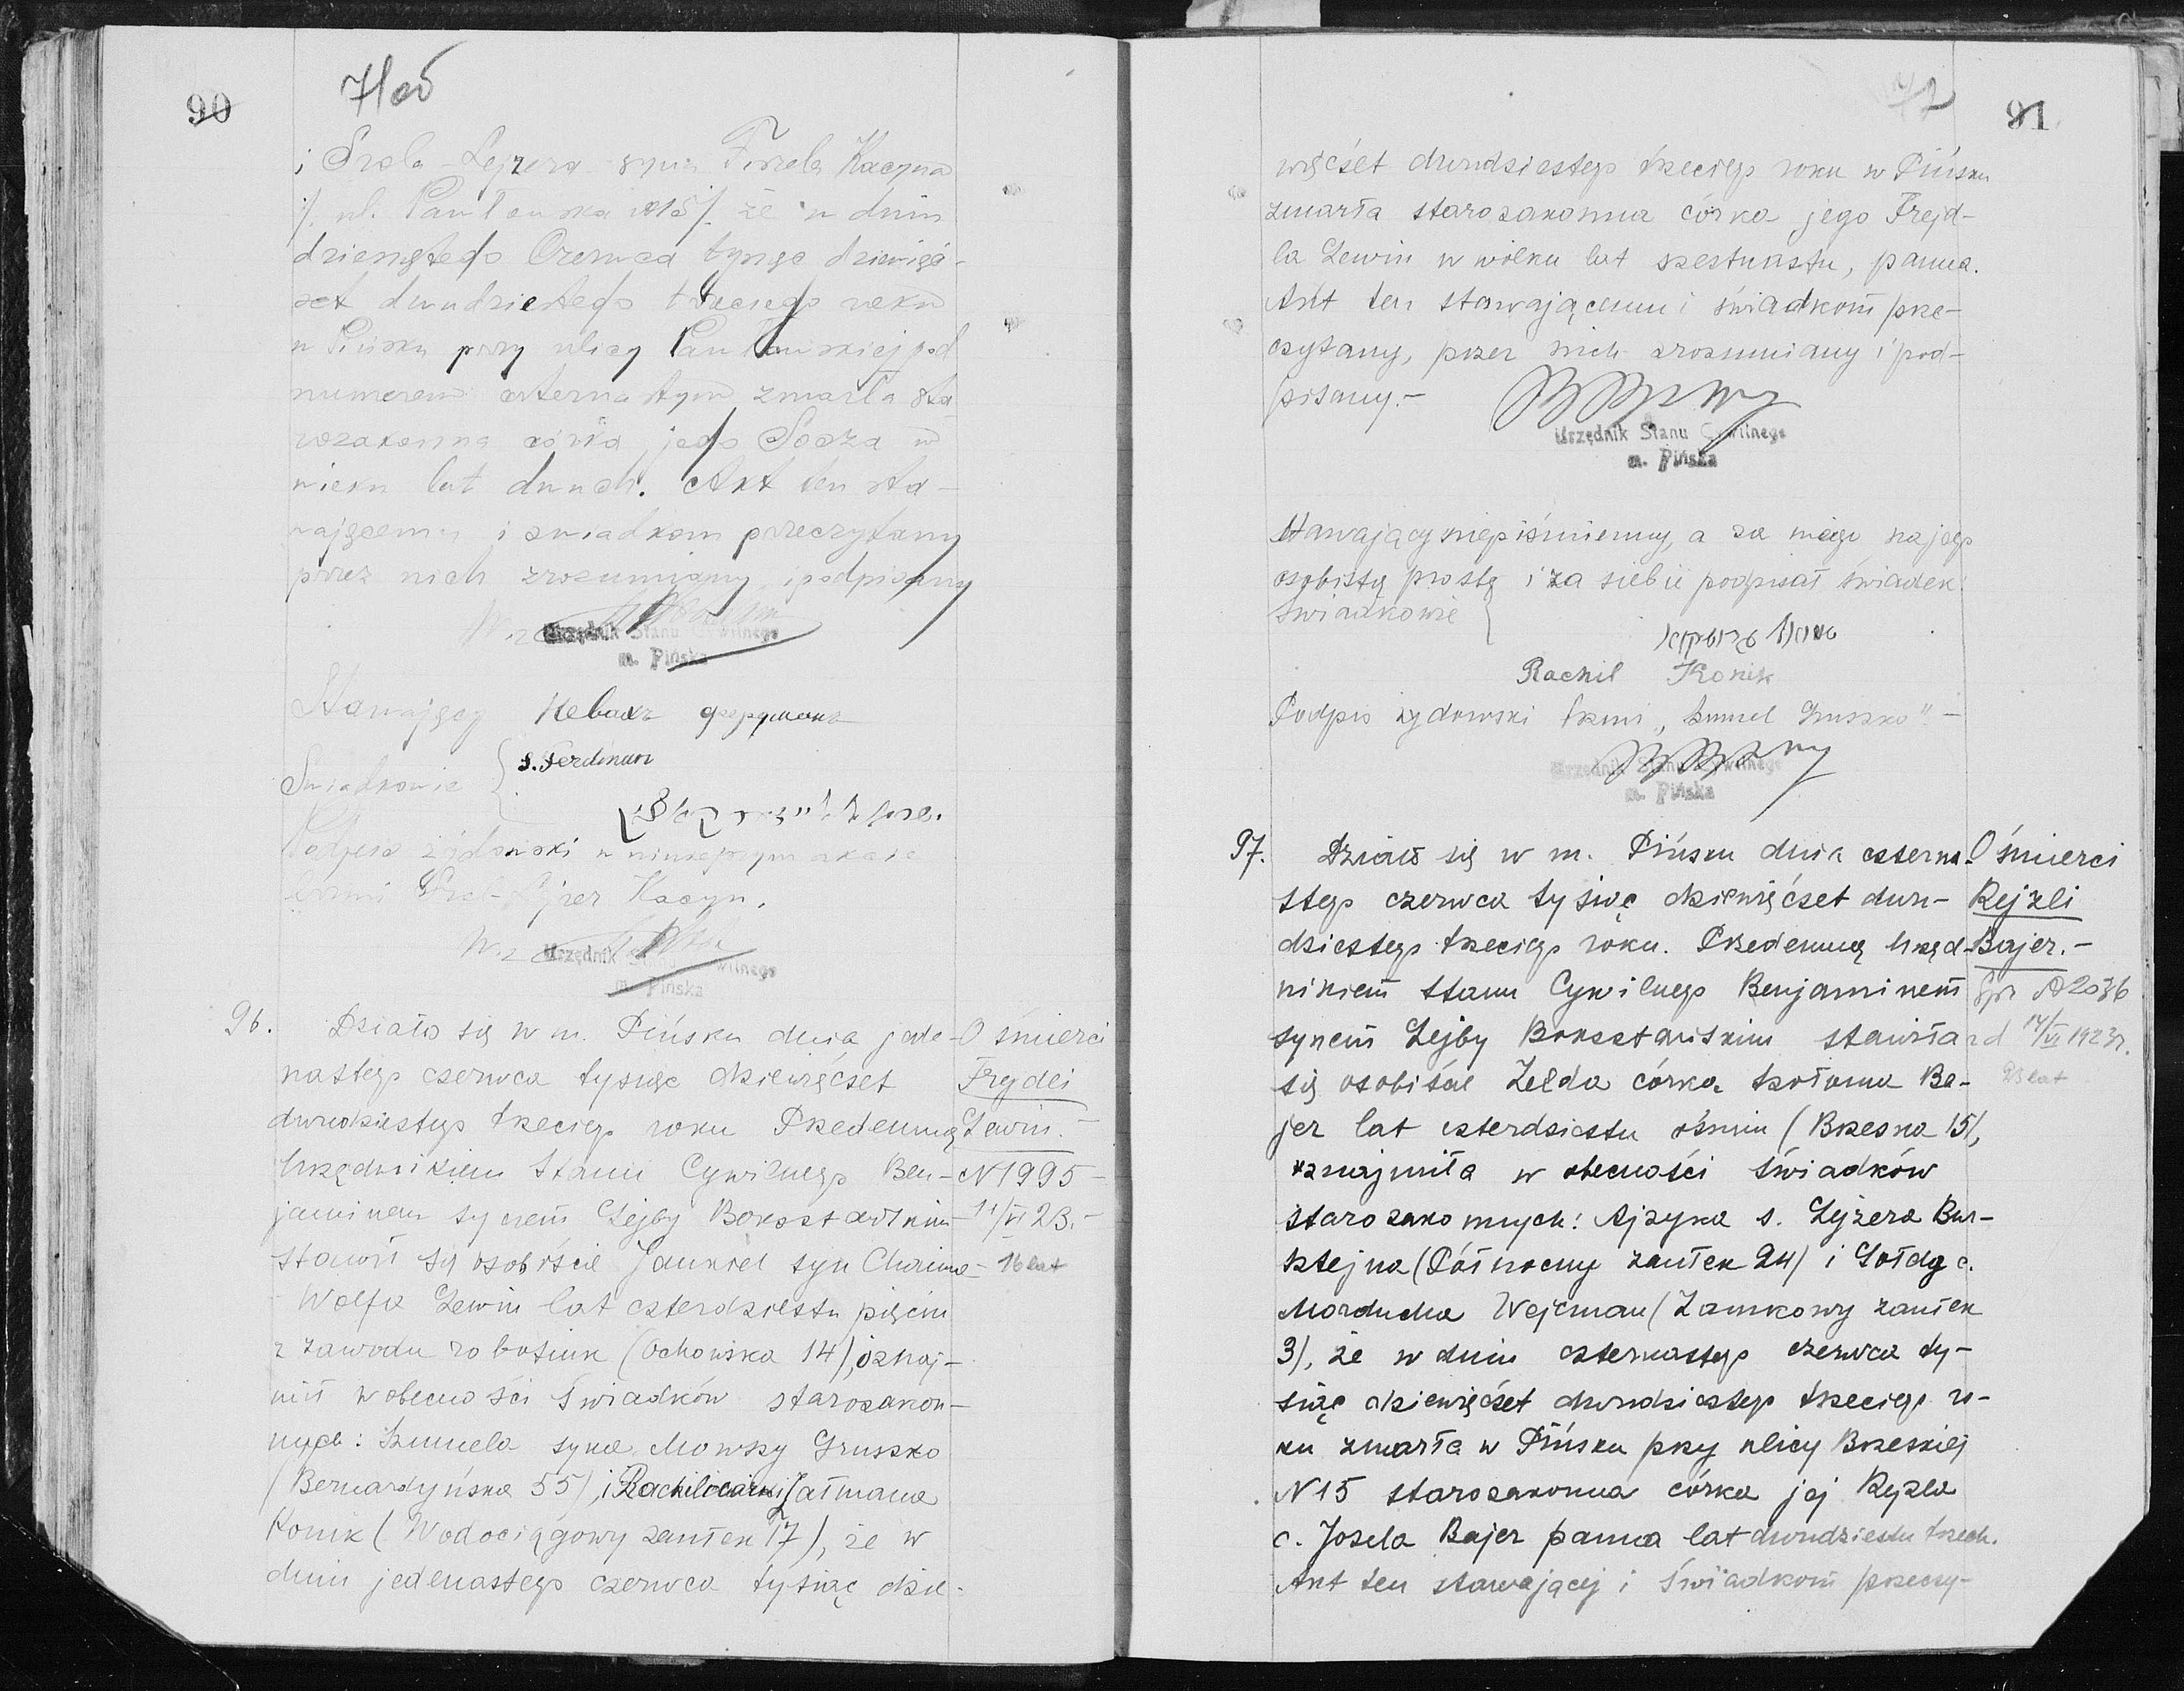 90
71 об
i Srola-Lejzera syna Fiszela Kacyna
/. ul. Pawłowska №15/. że w dniu
dziewiątego Czerwca tysiąc dziewięć-
set dwudziestego trzeciego roku
w Pińsku przy ulicy Pawłowskiej pod
numerem czternastym zmarła sta-
rozakonna córka jego Sosza w
wieku lat dwuch. Akt ten sta-
wającemu i świadkom przeczytany
przez nich zrozumiany i podpisany
W. z.
Urzędnik Stanu Cywilnego
m. Pińska
Stawający
Świadkowie { S. Ferdman
Podpis żydowski w niniejszym akcie
brzmi Srol-Lejzer Kacyn.
W. z.
Urzędnik Stanu Cywilnego
m. Pińska
96. Działo się w m. Pińsku dnia jede-
nastego czerwca tysiąc dziewięćset
dwudziestego trzeciego roku Przedemną
Urzędnikiem Stanu Cywilnego Ben-
jaminem synem Lejby Boksztańskim
stawił się osobiście Jankiel syn Chaima-
Wolfa Lewin lat czterdziestu pięciu
z zawodu robotnik (Ochowska 14), oznaj-
mił w obecności świadków starozakon-
nych: Szmuela syna Mowszy Gruszko
(Bernardyńska 55), i Rachili córki Załmana
Konik (Wodociągowy zaułek 17), że w
dniu jedenastego czerwca tysiąc dzie-
O śmierci
Frejdli
Lewin.-
N 1995-
11/VI 23.-
16 lat
72
91
więćset dwudziestego trzeciego roku w Pińsku
zmarła starozakonna córka jego Frejd-
la Lewin w wieku lat szesnastu, panna.
Akt ten stawającemu i świadkom prze-
czytany, przez nich zrozumiany i pod-
pisany.-
Urzędnik Stanu Cywilnego
m. Pińska
Stawający niepiśmienny, a za niego na jego
osobistą prośbę i za siebie podpisał świadek
świadkowie {
Rachil Konik
Podpis żydowski brzmi „Szmuel Gruszko".-
Urzędnik Stanu Cywilnego
m. Pińska
97. Działo się w m. Pińsku dnia czterna-
stego czerwca tysiąc dziewięćset dwu-
dziestego trzeciego roku. Przedemną Urzęd-
nikiem Stanu Cywilnego Benjaminem
synem Lejby Boksztańskim stawiła
się osobiście Zelda córka Szołoma Ba-
jer lat czterdziestu ośmiu (Brzeska 15),
oznajmiła w obecności świadków
starozakonnych: Ajzyka s. Lejzera Bur-
sztejna (Północny zaułek 24) i Gołdy c.
Morducha Wejcman (Zamkowy zaułek
3), że w dniu czternastego czerwca ty-
siąc dziewięćset dwudziestego trzeciego ro-
ku zmarła w Pińsku przy ulicy Brzeskiej
N 15 starozakonna córka jej Rejzla
c. Josela Bajer panna lat dwudziestu trzech.
Akt ten stawającej i świadkom przeczy-
O śmierci
Rejzli
Bajer.-
Spr N 2036
rd 14/VI 1923r.
23 lat